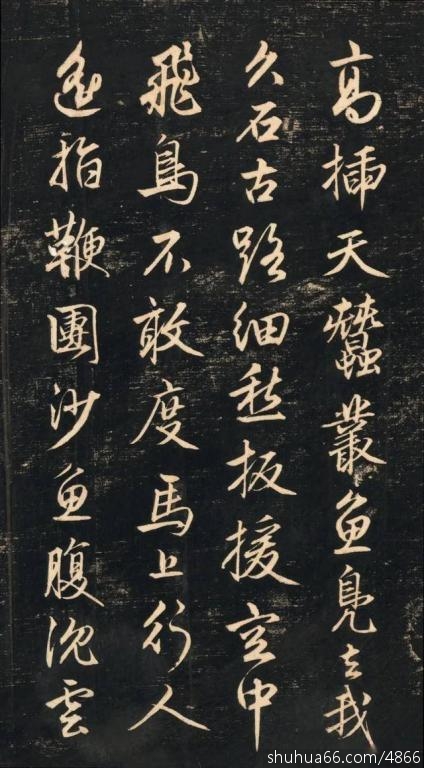 高插天蠶叢魚鳧去我
久石古路細愁扳援空中
飛鳥不敢度馬上行人
遥指鞭團沙魚腹沉雲
shuhua66.com/4866